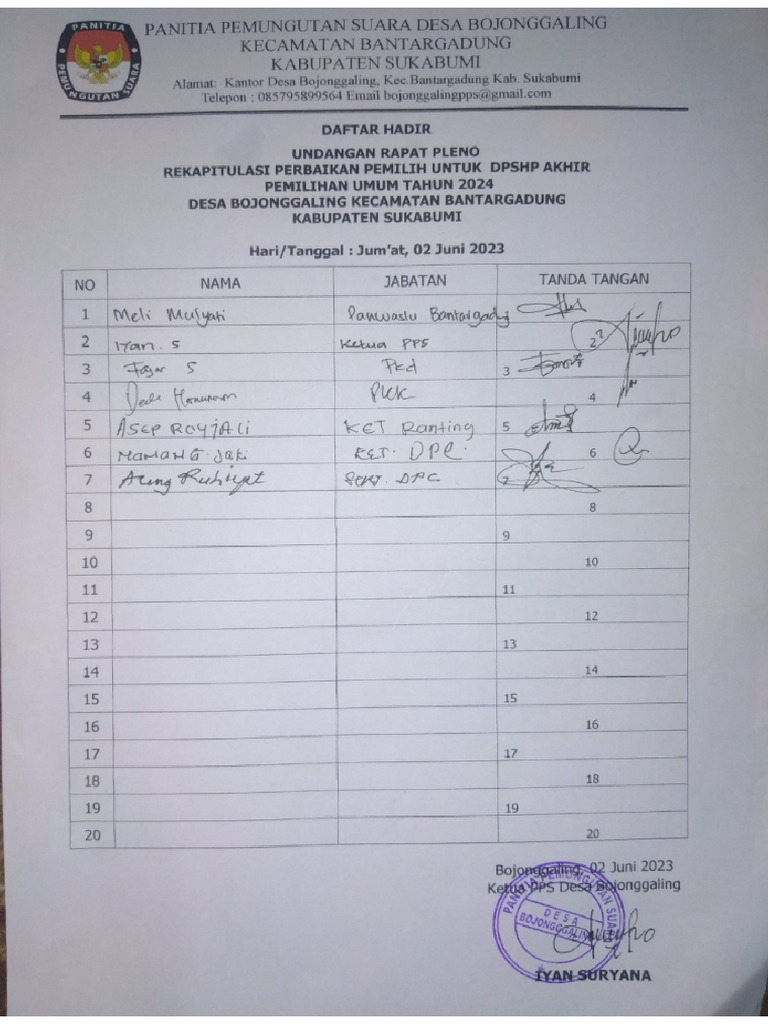 PANITIA PEMUNGUTAN SUARA DESA BOJONGGALING
KECAMATAN BANTARGADUNG
KABUPATEN SUKABUMI
Alamat: Kantor Desa Bojonggaling, Kec.Bantargadung Kab. Sukabumi
Telepon : 085795899564 Email bojonggalingpps@gmail.com
PANITIA
PEMUNGUTAN SUARA
DAFTAR HADIR
UNDANGAN RAPAT PLENO
REKAPITULASI PERBAIKAN PEMILIH UNTUK DPSHP AKHIR
PEMILIHAN UMUM TAHUN 2024
DESA BOJONGGALING KECAMATAN BANTARGADUNG
KABUPATEN SUKABUMI
Hari/Tanggal : Jum'at, 02 Juni 2023
NO NAMA JABATAN TANDA TANGAN
1 Meli Mulyati Panwaslu Bantargadung
2 Iyan. S Ketua PPS 2
3 Fajar S Pkd 3
4 4
5 ASEP ROYJALI KET Ranting 5
6 MAMANG Jaki KET. DPC. 6
7 Aceng Ruhiyat Sekr. DPC 7
8 8
9 9
10 10
11 11
12 12
13 13
14 14
15 15
16 16
17 17
18 18
19 19
20 20
Bojonggaling, 02 Juni 2023
Ketua PPS Desa Bojonggaling
PANITIA PEMUNGUTAN SUARA
DESA
BOJONGGALING
IYAN SURYANA